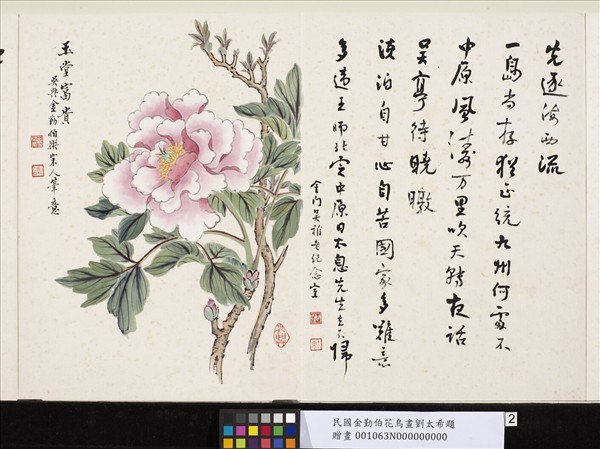 先逐海西流
一島尚存猶正統九州何處不
中原風濤萬里吹天轉夜話
吳亭待曉暾
淡泊自甘心自苦國家多難意
多違王師北定中原日太息先生去不歸
金門吳稚老紀念室
玉堂富貴
吳興金勤伯撫宋人筆意
民國金勤伯花鳥畫劉太希題
贈畫 001063N000000000
2